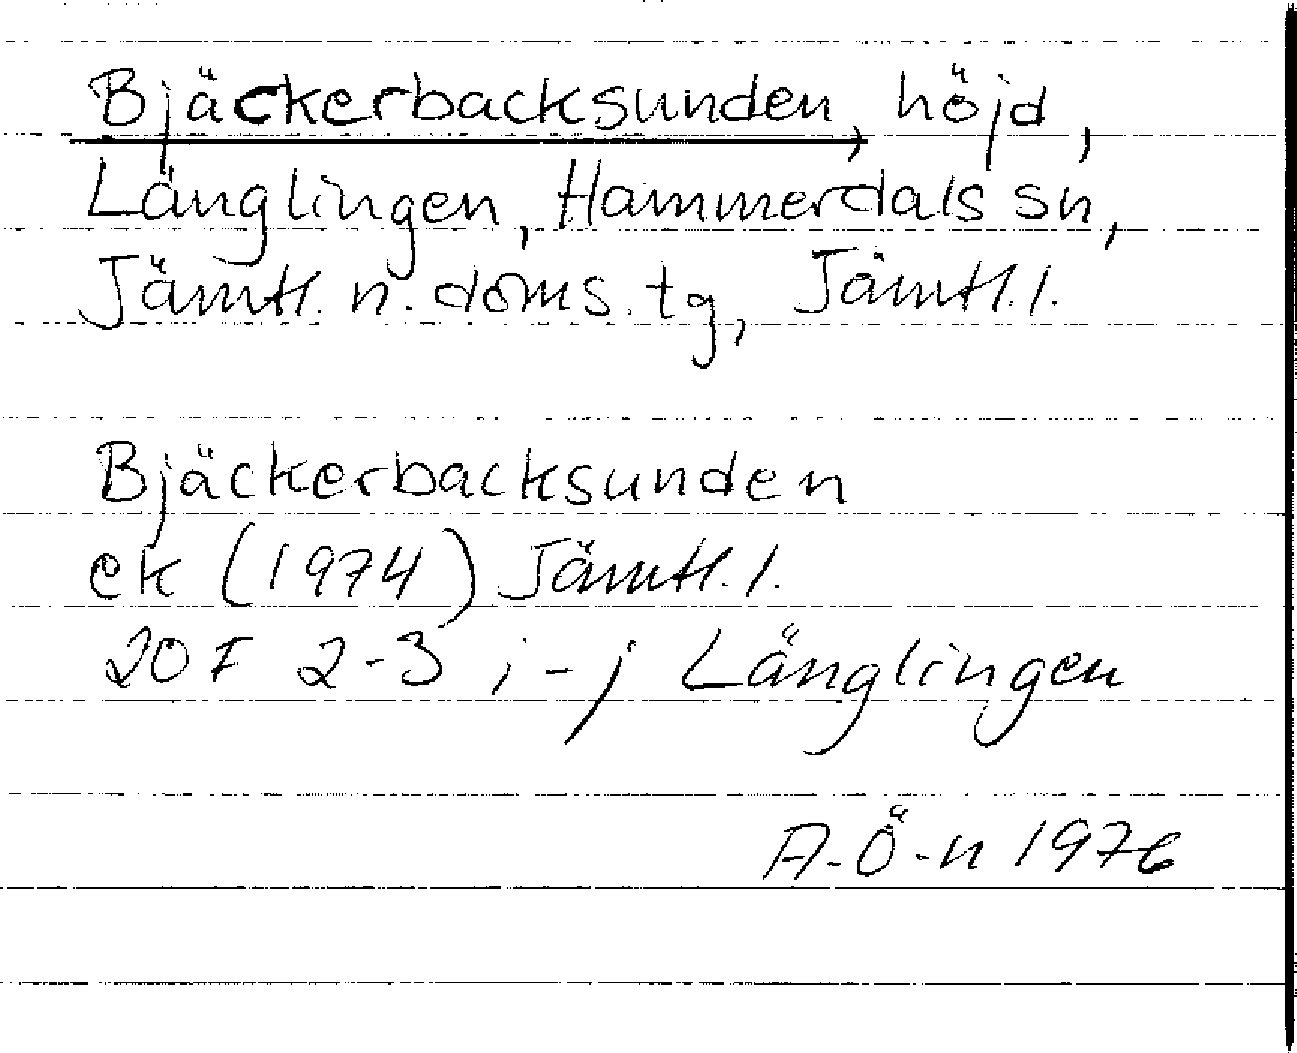 Bjäckerbacksunden, höjd,
Länglingen, Hammerdals sn,
Jämtl. n. doms. tg, Jämtl. l.
Bjäckerbacksunden
ek (1974) Jämtl. l.
20F 2-3 i-j Länglingen
A-Ö-n 1976